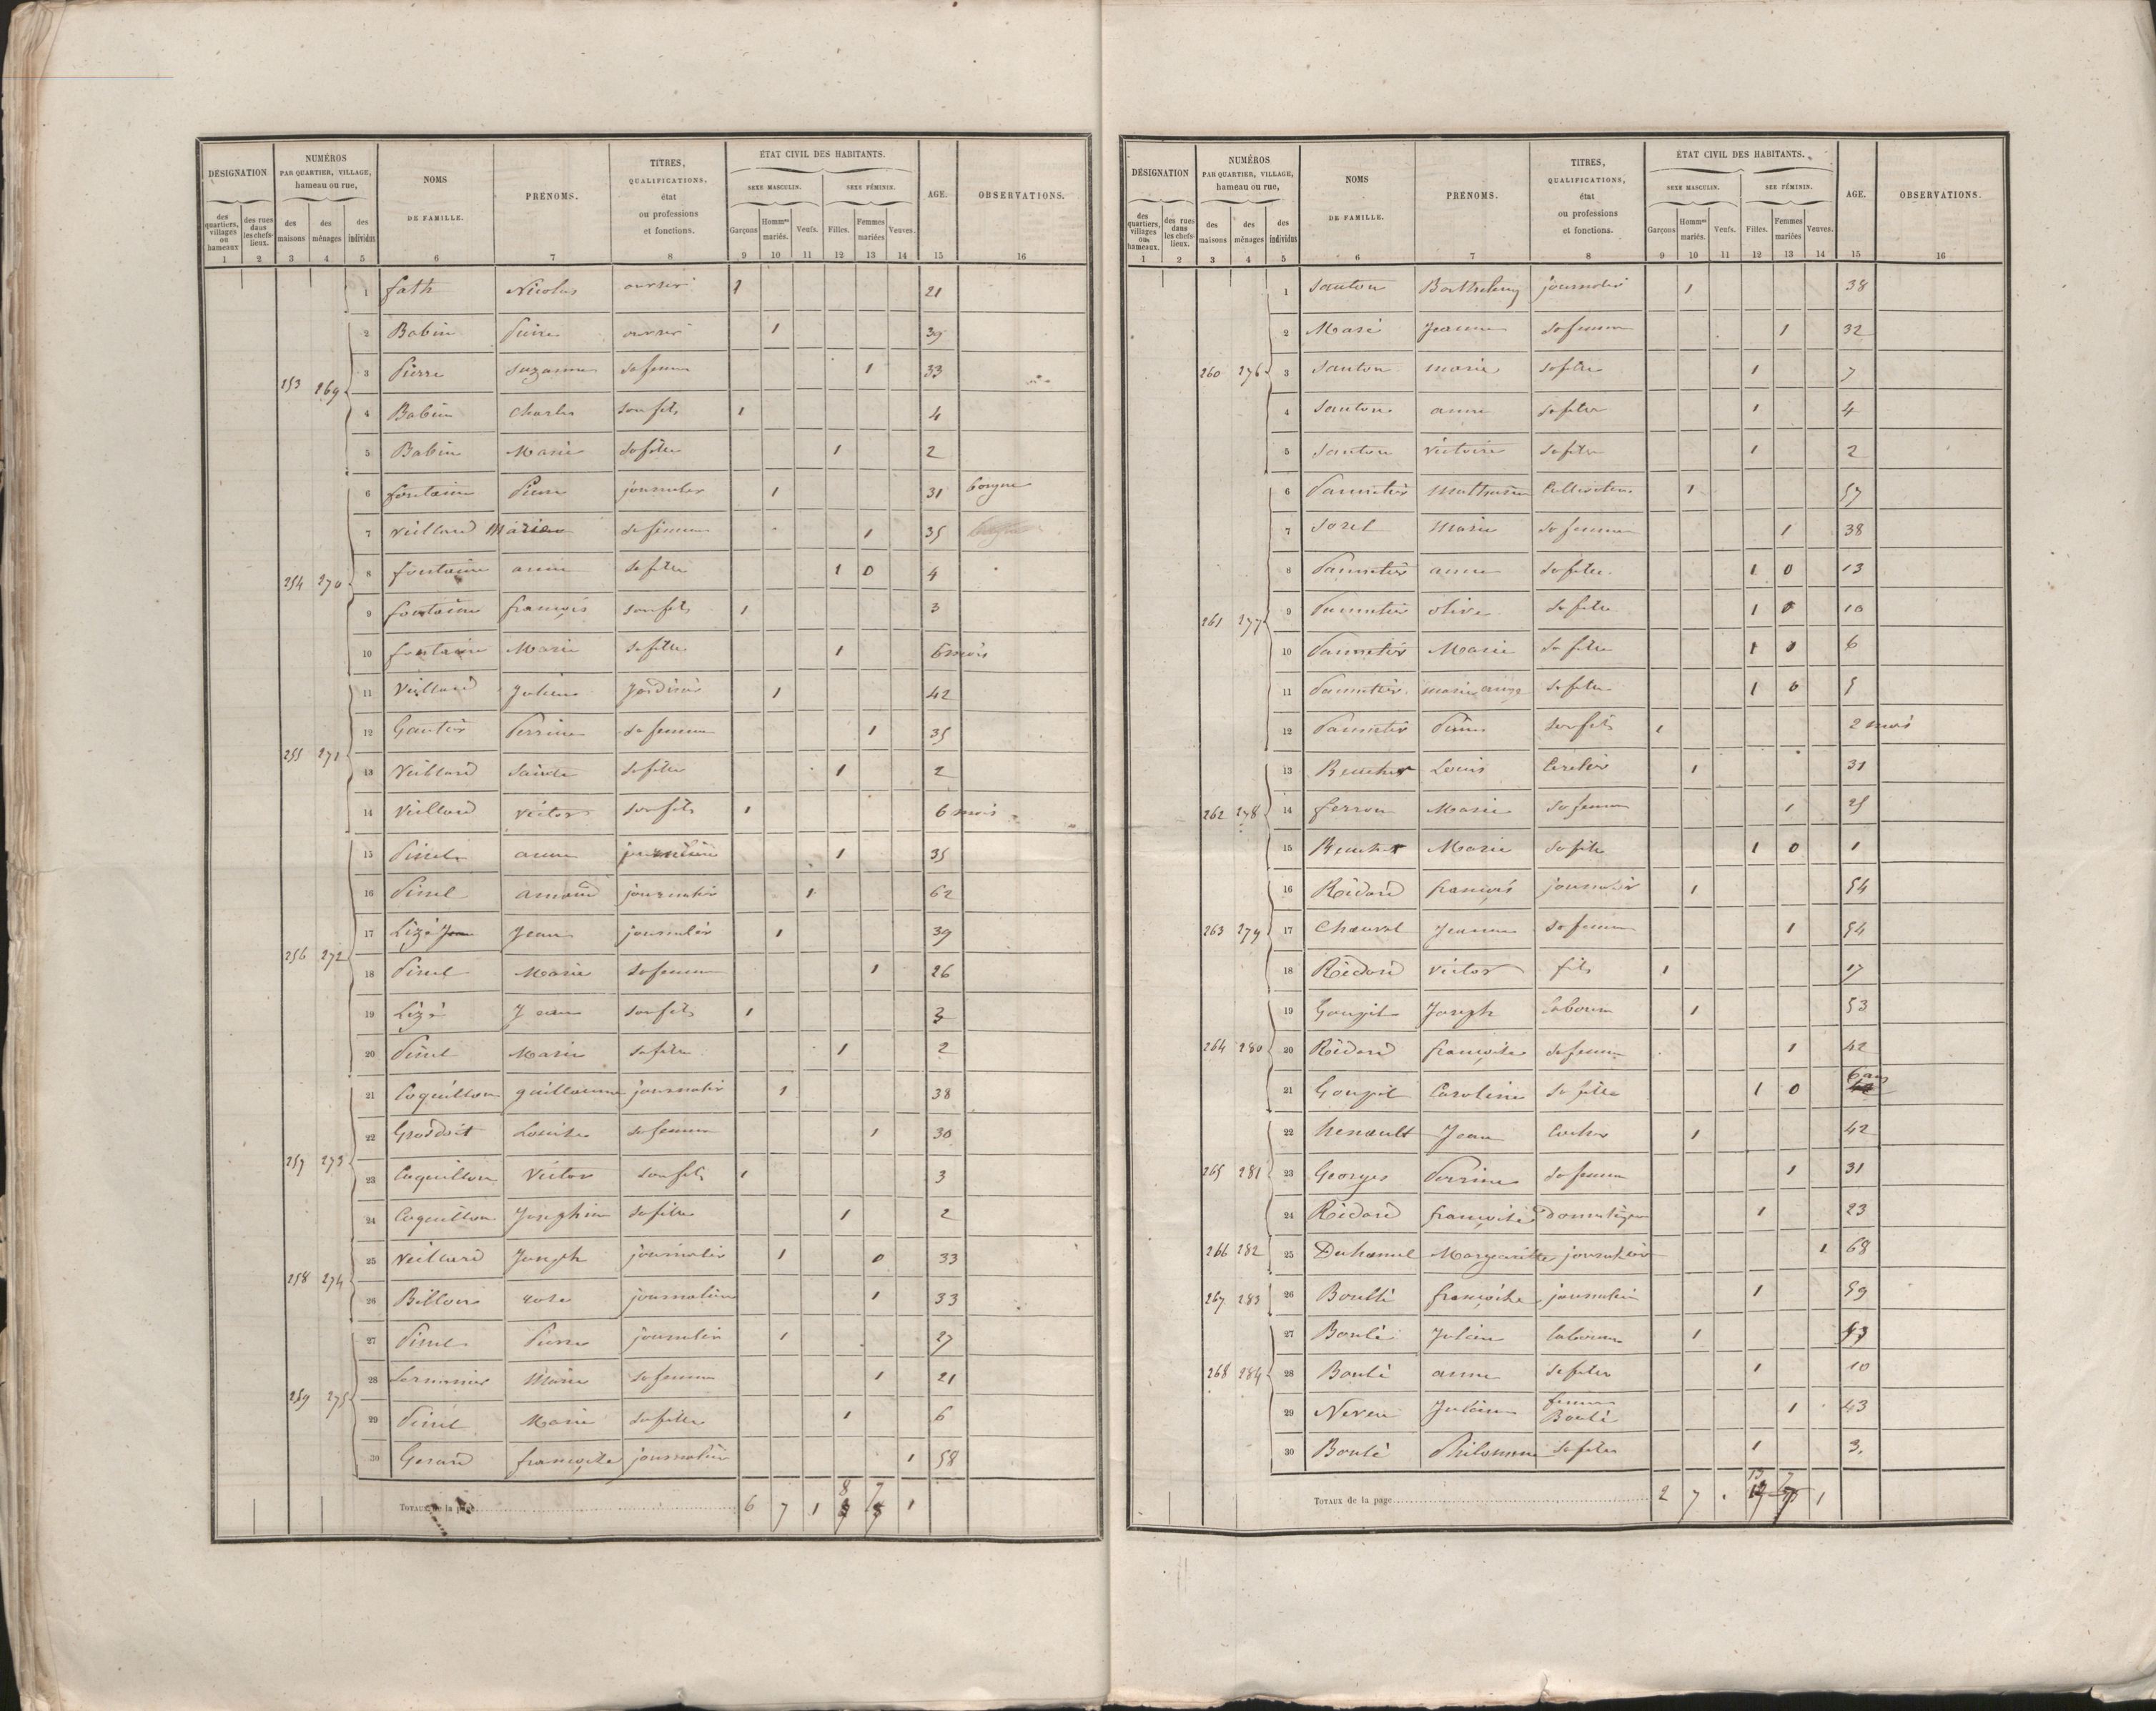 DÉSIGNATION
NUMÉROS
PAR QUARTIER, VILLAGE,
hameau ou rue,
NOMS
DE FAMILLE.
PRÉNOMS.
TITRES,
QUALIFICATIONS,
état
ou professions
et fonctions.
ÉTAT CIVIL DES HABITANTS.
SEXE MASCULIN.
SEXE FÉMININ.
AGE.
OBSERVATIONS.
des quartiers, villages ou hameaux
des rues dans les chefs-lieux.
des maisons
des ménages
des individus
Garçons
Hommes mariés.
Veufs.
Filles.
Femmes mariées
Veuves.
1 2 3 4 5 6 7 8 9 10 11 12 13 14 15 16
1 fath Nicolas ouvrier 1 21
2 Babin Pierre ouvrier 1 39
253 269 3 Pierre Suzanne sa femme 1 33
4 Babin Charles son fils 1 4
5 Babin Marie sa fille 1 2
6 fontaine Pierre journalier 1 31 borgne
7 Veillard Marie sa femme 1 35
254 270 8 fontaine anne sa fille 1 0 4
9 fontaine françois son fils 1 3
10 fontaine Marie sa fille 1 6 mois
11 Veillard Julien Jardinier 1 42
12 Gautier Perrine sa femme 1 35
255 271 13 Veillard Sainte sa fille 1 2
14 Veillard Victor son fils 1 6 mois
15 Pinel anne journalière 1 35
16 Pinel amand journalier 1 62
17 Lizé Jean Jean journalier 1 39
256 272 18 Pinel Marie sa femme 1 26
19 Lizé Jean son fils 1 3
20 Pinel Marie sa fille 1 2
21 Coquillon guillaume journalier 1 38
22 Grosdoit Louise sa femme 1 30
257 273 23 Coquillon Victor son fils 1 3
24 Coquillon Josephine sa fille 1 2
25 Veillard Joseph journalier 1 0 33
258 274 26 Billon rose journalière 1 33
27 Pinel Pierre journalier 1 27
28 Lormenier Marie sa femme 1 21
259 275 29 Pinel Marie sa fille 1 6
30 Gerard françoise journalière 1 58
8 7
TOTAUX de la page 6 7 1 1
DÉSIGNATION
NUMÉROS
PAR QUARTIER, VILLAGE,
hameau ou rue,
NOMS
DE FAMILLE.
PRÉNOMS.
TITRES,
QUALIFICATIONS,
état
ou professions
et fonctions.
ÉTAT CIVIL DES HABITANTS.
SEXE MASCULIN.
SEE FÉMININ.
AGE.
OBSERVATIONS.
des quartiers, villages ou hameaux.
des rues dans les chefs-lieux.
des maisons
des ménages
des individus
Garçons
Hommes mariés.
Veufs.
Filles.
Femmes mariées
Veuves.
1 2 3 4 5 6 7 8 9 10 11 12 13 14 15 16
1 Santon Barthelemy journalier 1 38
2 Marié Jeanne sa femme 1 32
260 276 3 Santon marie sa fille 1 7
4 Santon anne sa fille 1 4
5 Santon Victoire sa fille 1 2
6 Pannetier Mathurin Cultivateur 1 57
7 Sorel Marie sa femme 1 38
8 Pannetier anne sa fille 1 0 13
261 277 9 Pannetier olive sa fille 1 0 10
10 Pannetier Marie sa fille 1 0 6
11 Pannetier marie ange sa fille 1 0 5
12 Pannetier Pierre son fils 1 2 mois
13 Louis 1 31
262 278 14 ferron Marie sa femme 1 25
15 Marie sa fille 1 0 1
16 Rédard françois journalier 1 54
263 279 17 Chauvel Jeanne sa femme 1 54
18 Rédard Victor fils 1 17
19 Goupil Joseph laboureur 1 53
264 280 20 Rédard françoise sa femme 1 42
21 Goupil Caroline sa fille 1 0 6 ans
22 henault Jean Cocher 1 42
265 281 23 Georges Perrine sa femme 1 31
24 Rédard françoise domestique 1 23
266 282 25 Duhamel Margueritte journalière 1 68
267 283 26 Boullé françoise journalière 1 59
27 Boulé Julien laboureur 1 53
268 284 28 Boulé anne sa fille 1 10
29 Neveu Julienne femme Boulé 1 43
30 Boulé Philomene sa fille 1 3.
13 7
TOTAUX de la page 2 7 . 1